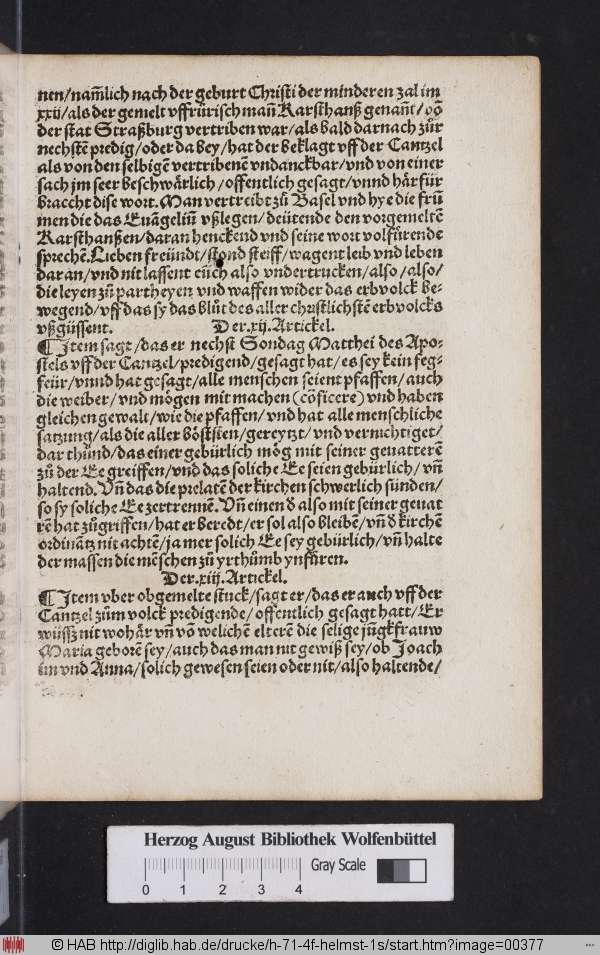 nen/nam̃lich nach der geburt Christi der minderen zal im
xxij/als der gemelt vffrürisch mañ Karsthanß genañt/võ
der stat Straßburg vertriben war/als bald darnach zůr
nechstẽ predig/oder da bey/hat der beklagt vff der Cantzel
als von den selbigẽ vertribenẽ vndanckbar/vnd von einer
sach jm seer beschwärlich/offentlich gesagt/vnnd härfür
braccht dise wort. Man vertreibt zů Basel vnd hye die frũ
men die das Euãgeliũ vßlegen/deütende den vorgemeltẽ
Karsthanßen/daran henckend vnd seine wort volfürende
sprechẽ. Lieben freündt/stond steiff/wagent leib vnd leben
daran/vnd nit lassent eüch also vndertrucken/also/also/
die leyen zů partheyen vnd waffen wider das erbvolck be-
wegend/vff das sy das blůt des aller christlichstẽ erbvolcks
vßgüssent. Der.xij.Artickel.
¶ Jtem sagt/das er nechst Sondag Matthei des Apo-
stels vff der Cantzel/predigend/gesagt hat/es sey kein feg-
feür/vnnd hat gesagt/alle menschen seient pfaffen/auch
die weiber/vnd mögen mit machen (cõficere) vnd haben
gleichen gewalt/wie die pfaffen/vnd hat alle menschliche
satzung/als die aller böstsien/gereytzt/vnd vernichtiget/
dar thůnd/das einer gebürlich mög mit seiner geuatterẽ
zů der Ee greiffen/vnd das soliche Ee seien gebürlich/vñ
haltend. Vñ das die prelatẽ der kirchen schwerlich sünden/
so sy soliche Ee zertrennẽ. Vñ einen d also mit seiner geuat
rẽ hat zůgriffen/hat er beredt/er sol also bleibẽ/vñ d kirchẽ
ordinãtz nit achtẽ/ja mer solich Ee sey gebürlich/vñ halte
der massen die mẽschen zů yrthůmb ynfüren.
Der.xiij.Artickel.
¶ Jtem vber obgemelte stuck/sagt er/das er auch vff der
Cantzel zům volck predigende/offentlich gesagt hatt/Er
wüssz nit wohär vñ võ welichẽ elterẽ die selige jũgkfrauw
Maria geborẽ sey/auch das man nit gewiß sey/ob Joach
im vnd Anna/solich gewesen seien oder nit/also haltende/
Herzog August Bibliothek Wolfenbüttel
Gray Scale
0 1 2 3 4
© HAB http://diglib.hab.de/drucke/h-71-4f-helmst-1s/start.htm?image=00377